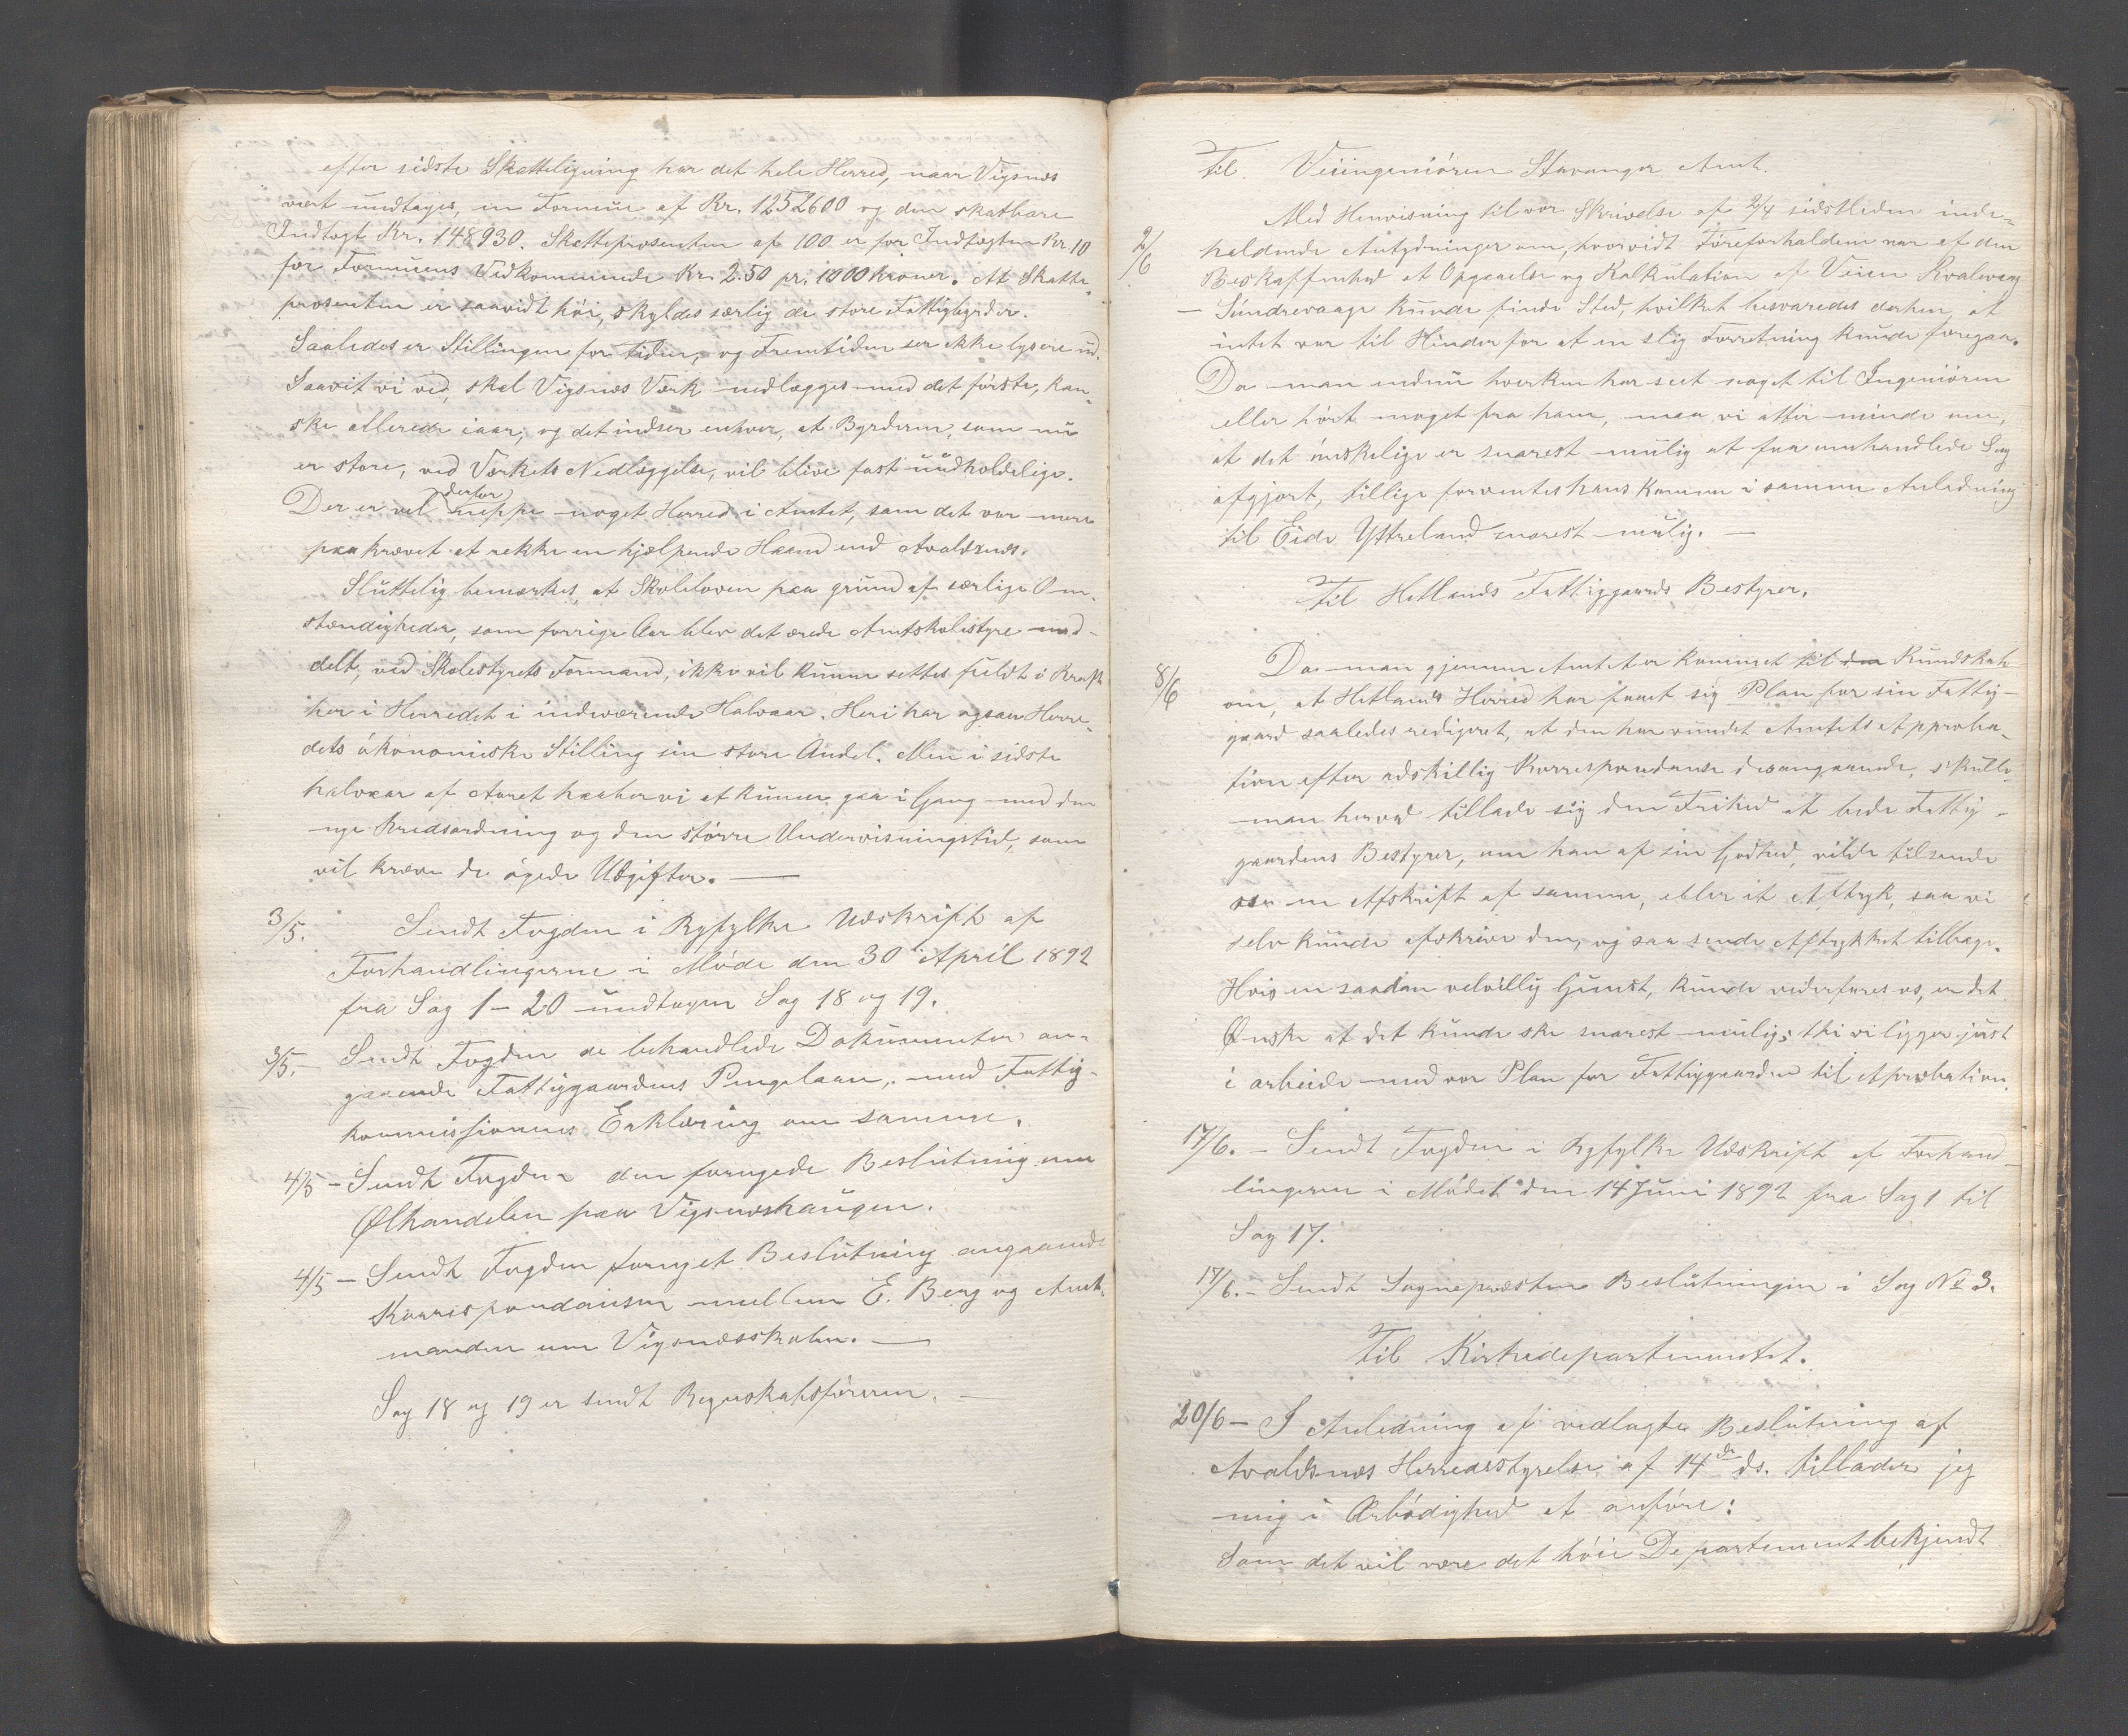 efter sidste Skatteligning har det hele Herred, naar Vigsnes
vært undtages, en Formue af Kr. 1252600 og den skatbare
Indtægt Kr. 148930. Skatteprosenten af 100 er for Indtægten Kr. 10
for Formuens Vedkommende Kr. 2.50 pr. 1000 kroner. At Skatte-
prosenten er saavidt høi, skyldes særlig de store Fattigbyrder.
Saaledes er Stillingen for tiden, og Fremtiden ser ikke lysere ud.
Saavit vi ved, skal Vigsnæs Værk nedlægges med det første, kan-
ske allerede iaar, og det indser enhver, at Byrderne, som nu
er store, ved Værkets Nedlæggelse, vil blive fast uudholdelige.
Der er vel derfor neppe noget Herred i Amtet, som det var mere
paakrævet at rekke en hjælpende Haand end Avaldsnæs.
Sluttelig bemærkes, at Skoleloven paa grund af særlige Om-
stændigheder, som forrige Aar blev det ærede Amtskolestyre med-
delt, ved Skolestyrets Formand, ikke vil kunne settes fuldt i Kraft
her i Herredet i indeværende Halvaar. Heri har ogsaa Herre-
dets økonomiske Stilling sin store Andel. Men i sidste
halvaar af Aaret haaber vi at kunne gaa i Gang med den
nye Kredsordning og den større Undervisningstid, som
vil kræve de øgede Udgifter. —
3/5. Sendt Fogden i Ryfylke Udskrift af
Forhandlingerne i Møde den 30 April 1892
fra Sag 1 – 20 undtagen Sag 18 og 19.
3/5. – Sendt Fogden de behandlede Dokumenter an-
gaaende Fattiggaardens Pengelaan, med Fattig-
kommissionens Erklæring om samme.
4/5 – Sendt Fogden den fornyede Beslutning om
Ølhandelen paa Vigsnæshaugen.
4/5 – Sendt Fogden fornyet Beslutning angaaende
Korrespondansen mellem E. Berg og Amt-
manden om Vigsnæsskolen. —
Sag 18 og 19 er sendt Regnskabsføreren. —
Til Veiingeniøren Stavanger Amt.
2/6 Med Henvisning til vor Skrivelse af 2/4 sidstleden inde-
holdende Antydninger om, hvorvidt Føreforholdene var af den
Beskaffenhed at Opgaaelse og Kalkulation af Veien Kvalevaag
– Sundrevaage kunde finde Sted, hvilket besvaredes derhen, at
intet var til Hinder for at en slig Forretning kunde foregaa.
Da man endnu hverken har seet noget til Ingeniøren
eller hørt noget fra ham, maa vi atter minde om,
at det ønskelige er snarest mulig at faa omhandlede Sag
afgjort, tillige forventes hans Komme i samme Anledning
til Eide Ytreland snarest mulig. —
Til Hetlands Fattiggaards Bestyrer.
8/6 Da man gjennem Amtet er kommet til den Kundskab
om, at Hetlands Herred har faaet sig Plan for sin Fattig-
gaard saaledes redigeret, at den har vundet Amtets Approba-
tion efter adskillig Korrespondanse desangaaende, skulle
man herved tillade sig den Frihed at bede Fattig-
gaardens Bestyrer, om han af sin Godhed, vilde tilsende
os en Afskrift af samme, eller et Aftryk, saa vi
selv kunde afskrive den, og saa sende Aftrykket tilbage.
Hvis en saadan velvillig Gunst, kunde vederfares os, er det
Ønske at det kunde ske snarest mulig; thi vi ligger just
i arbeide med vor Plan for Fattiggaarden til Aprobation.
17/6. – Sendt Fogden i Ryfylke Udskrift af Forhand-
lingerne i Mødet den 14 Juni 1892 fra Sag 1 til
Sag 17.
17/6. – Sendt Sognepræsten Beslutningen i Sag No 3.
Til Kirkedepartementet.
20/6 – I Anledning af vedlagte Beslutning af
Avaldsnæs Herredsstyrelse af 14de ds. tillader jeg
mig i Ærbødighed at anføre:
Som det vil være det høie Departement bekjendt